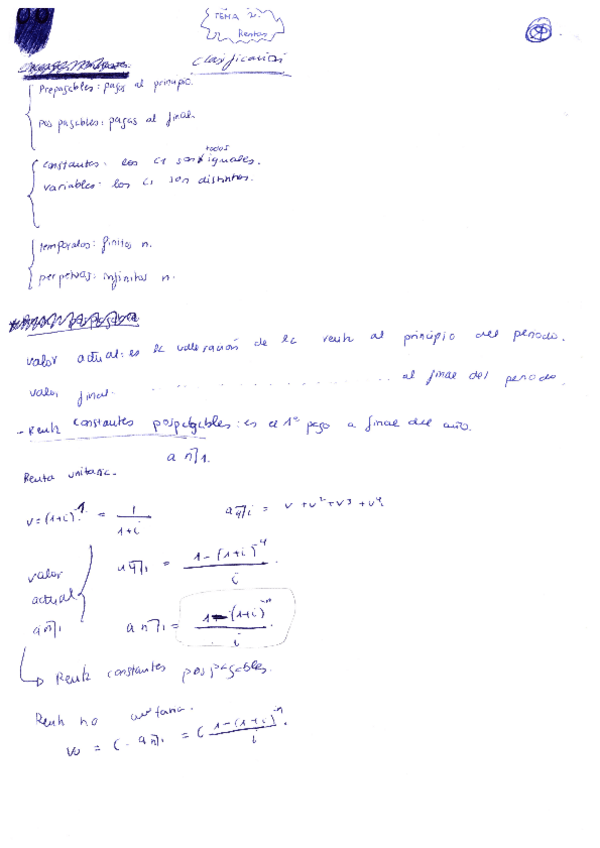 TEMA 2.
Rentas
clasificación
Prepagables: pagas al principio.
pospagables: pagas al final.
constantes: los c1 son todos iguales.
variables: los c1 son distintos.
temporales: finitos n.
perpetuas: infinitos n.
valor actual: es la valoración de la renta al principio del periodo.
valor final: .................... al final del periodo.
- Renta constantes pospagables: es el 1º pago a final del año.
a n̅|1.
Renta unitaria.
v = (1+i)^-1 = 1/(1+i)    a 4̅|i = v + v² + v³ + v⁴
valor actual a n̅|i
a 4̅|i = (1-(1+i)^-4)/i
a n̅|i = (1-(1+i)^-n)/i
Renta constantes pospagables.
Renta no unitaria.
Vo = C · a n̅|i = C (1-(1+i)^-n)/i